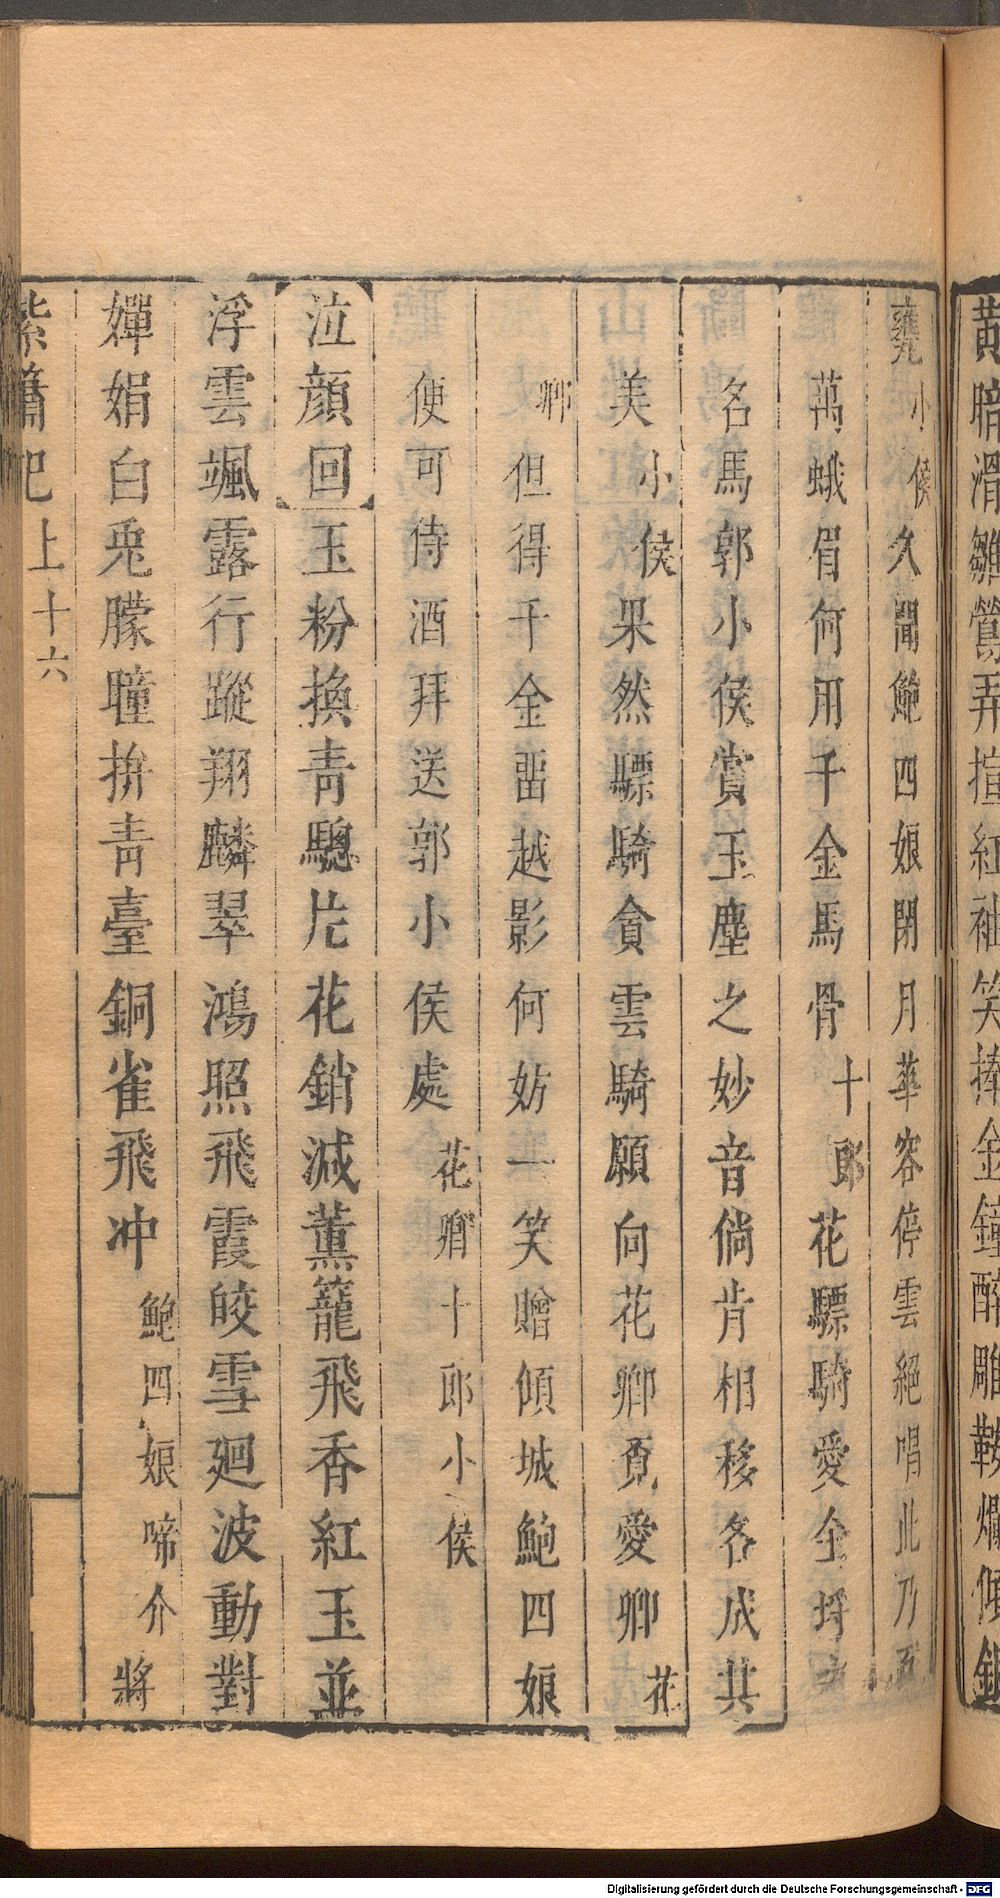 黄暗滑雛鶯弄揎紅袖笑捧金鐘醉雕鞍爛傾銀
甕小侯久聞鮑四娘閉月華容停雲絕唱此乃五
萬蛾眉何用千金馬骨十郎花驃騎愛全埒之
名馬郭小侯賞玉塵之妙音倘肯相移各成其
美小侯果然驃騎貪雲騎願向花卿覔愛卿花
卿但得千金畱越影何妨一笑贈傾城鮑四娘
便可侍酒拜送郭小侯處花卿十郎小侯
泣顏回玉粉換青驄片花銷減薰籠飛香紅玉並
浮雲颯露行蹤翔麟翠鴻照飛霞皎雪廻波動對
嬋娟白兎朦朣拚青臺銅雀飛冲鮑四娘啼介將
紫簫記上十六
Digitalisierung gefördert durch die Deutsche Forschungsgemeinschaft - DFG